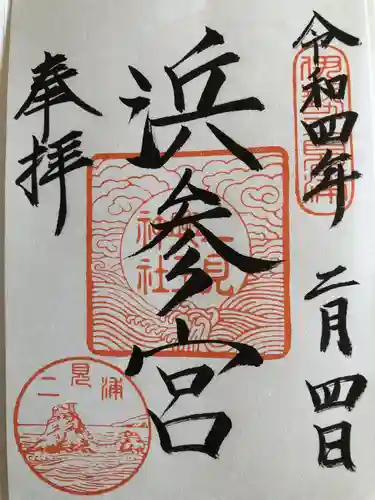 令和四年 二月 四日
浜参宮
奉拝
二見浦